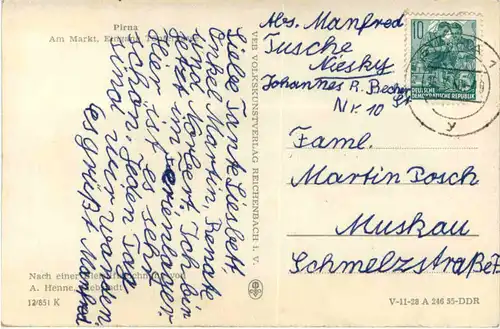 Pirna
Am Markt, Eingang
Liebe Tante Liesbett
Onkel Martin, Renate
und Norbert. Ich bin
jetzt im Ferienlager
Hier ist es sehr
schön. Jeden Tag
sind wir baden.
Es grüßt Manfred
Nach einer
A. Henne,
12/851 K
VEB VOLKSKUNSTVERLAG REICHENBACH I. V.
Abs. Manfred
Tusche
Niesky
Johannes R. Becher
Str.
Nr. 10
10
DEUTSCHE
DEMOKRATISCHE REPUBLIK
Faml.
Martin Posch
Muskau
Schmelzstraße 7
V-11-28 A 246 55-DDR